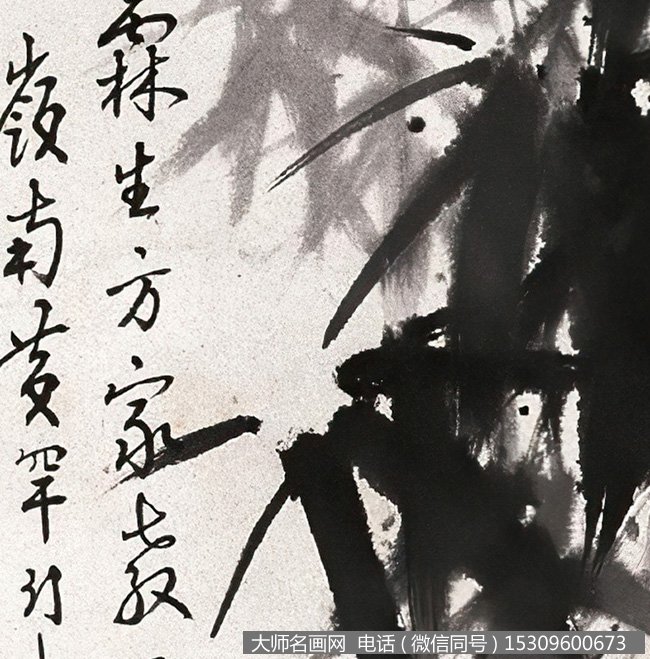 霖生方家教
嶺南黃罕行
大师名画网  电话（微信同号）15309600673